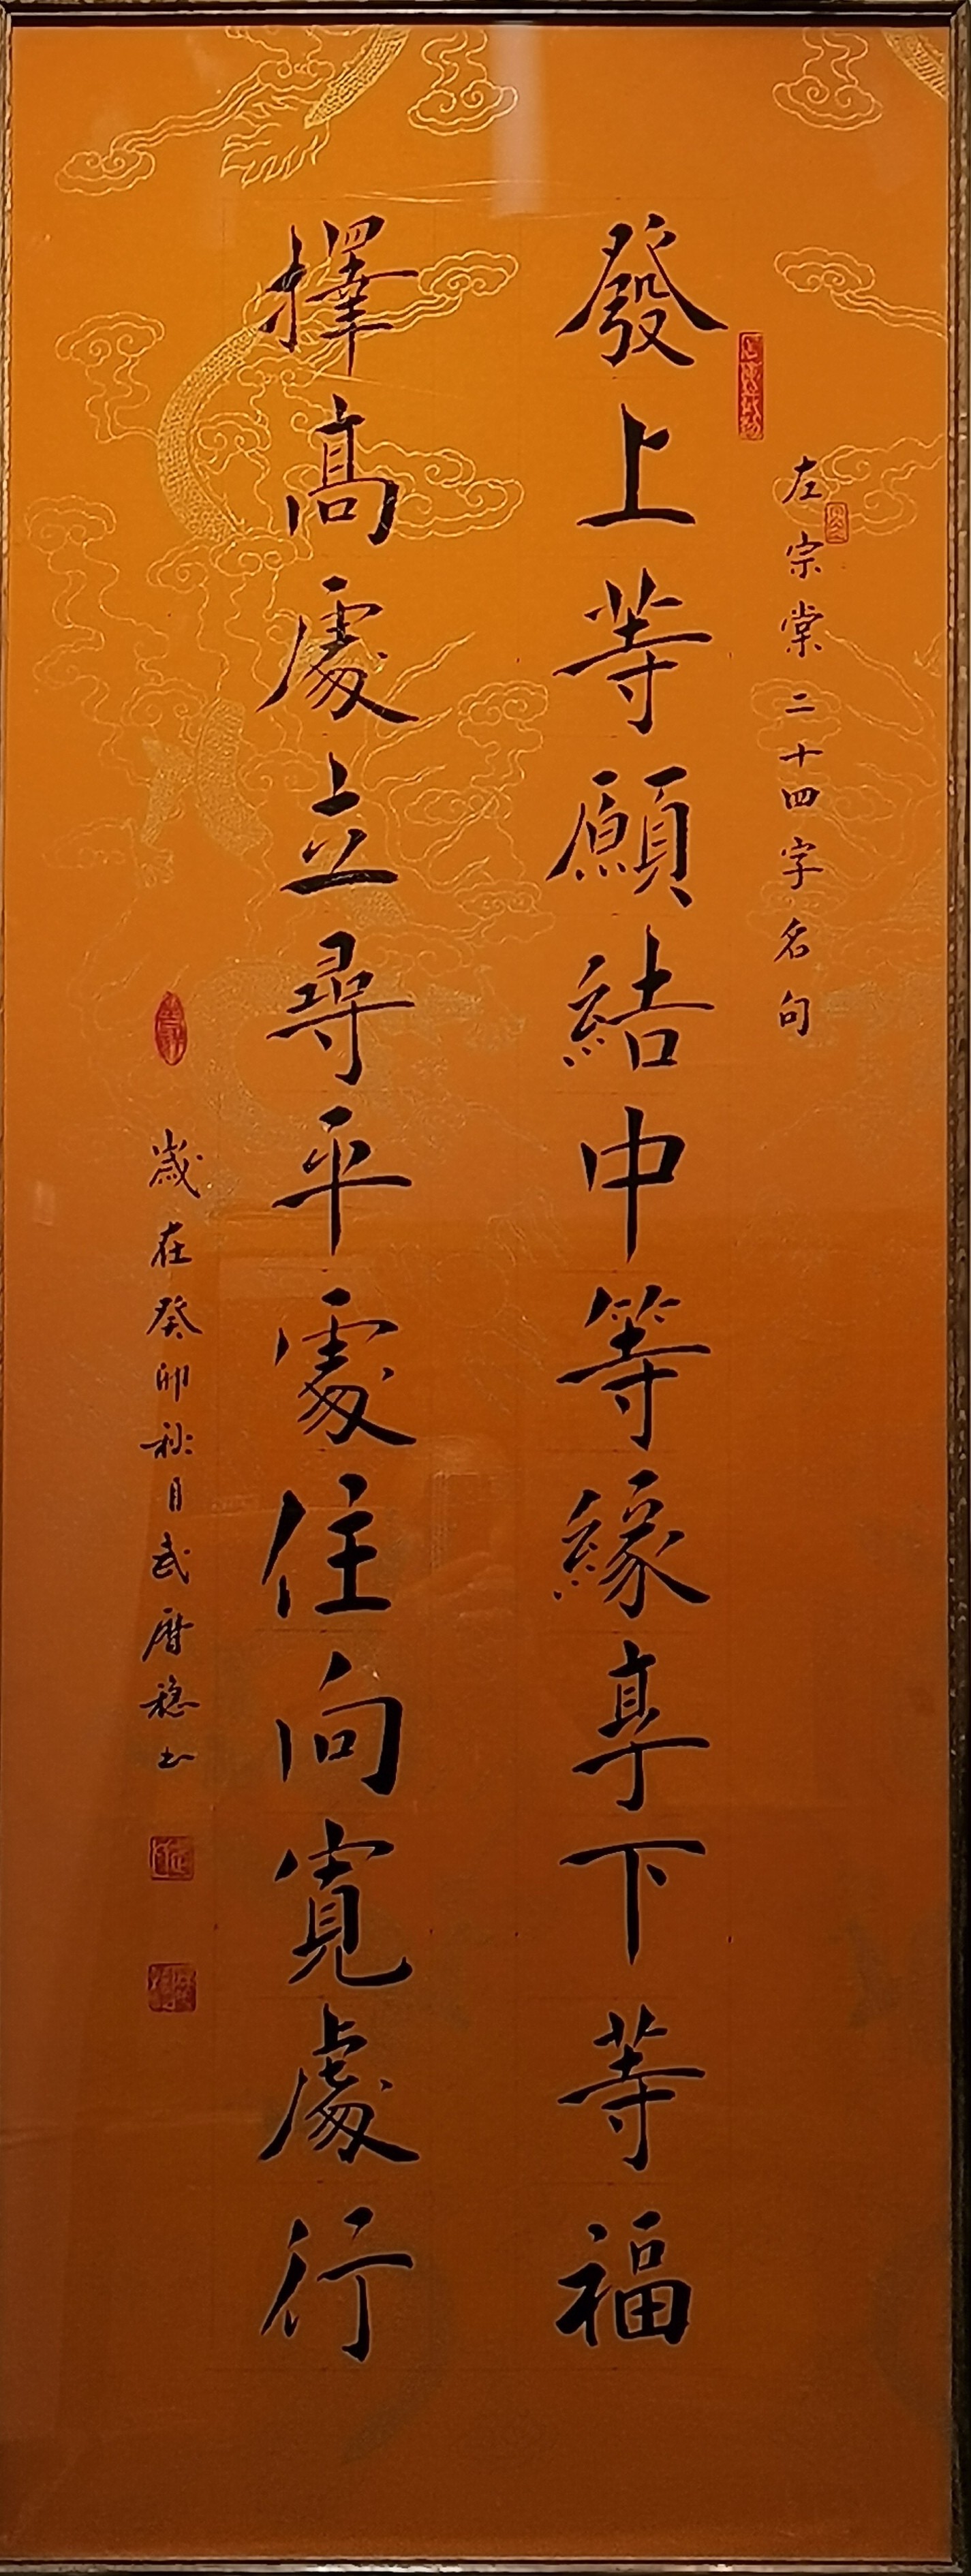 左宗棠二十四字名句
發上等願結中等緣享下等福
擇高處立尋平處住向寬處行
歲在癸卯秋月武層穩书